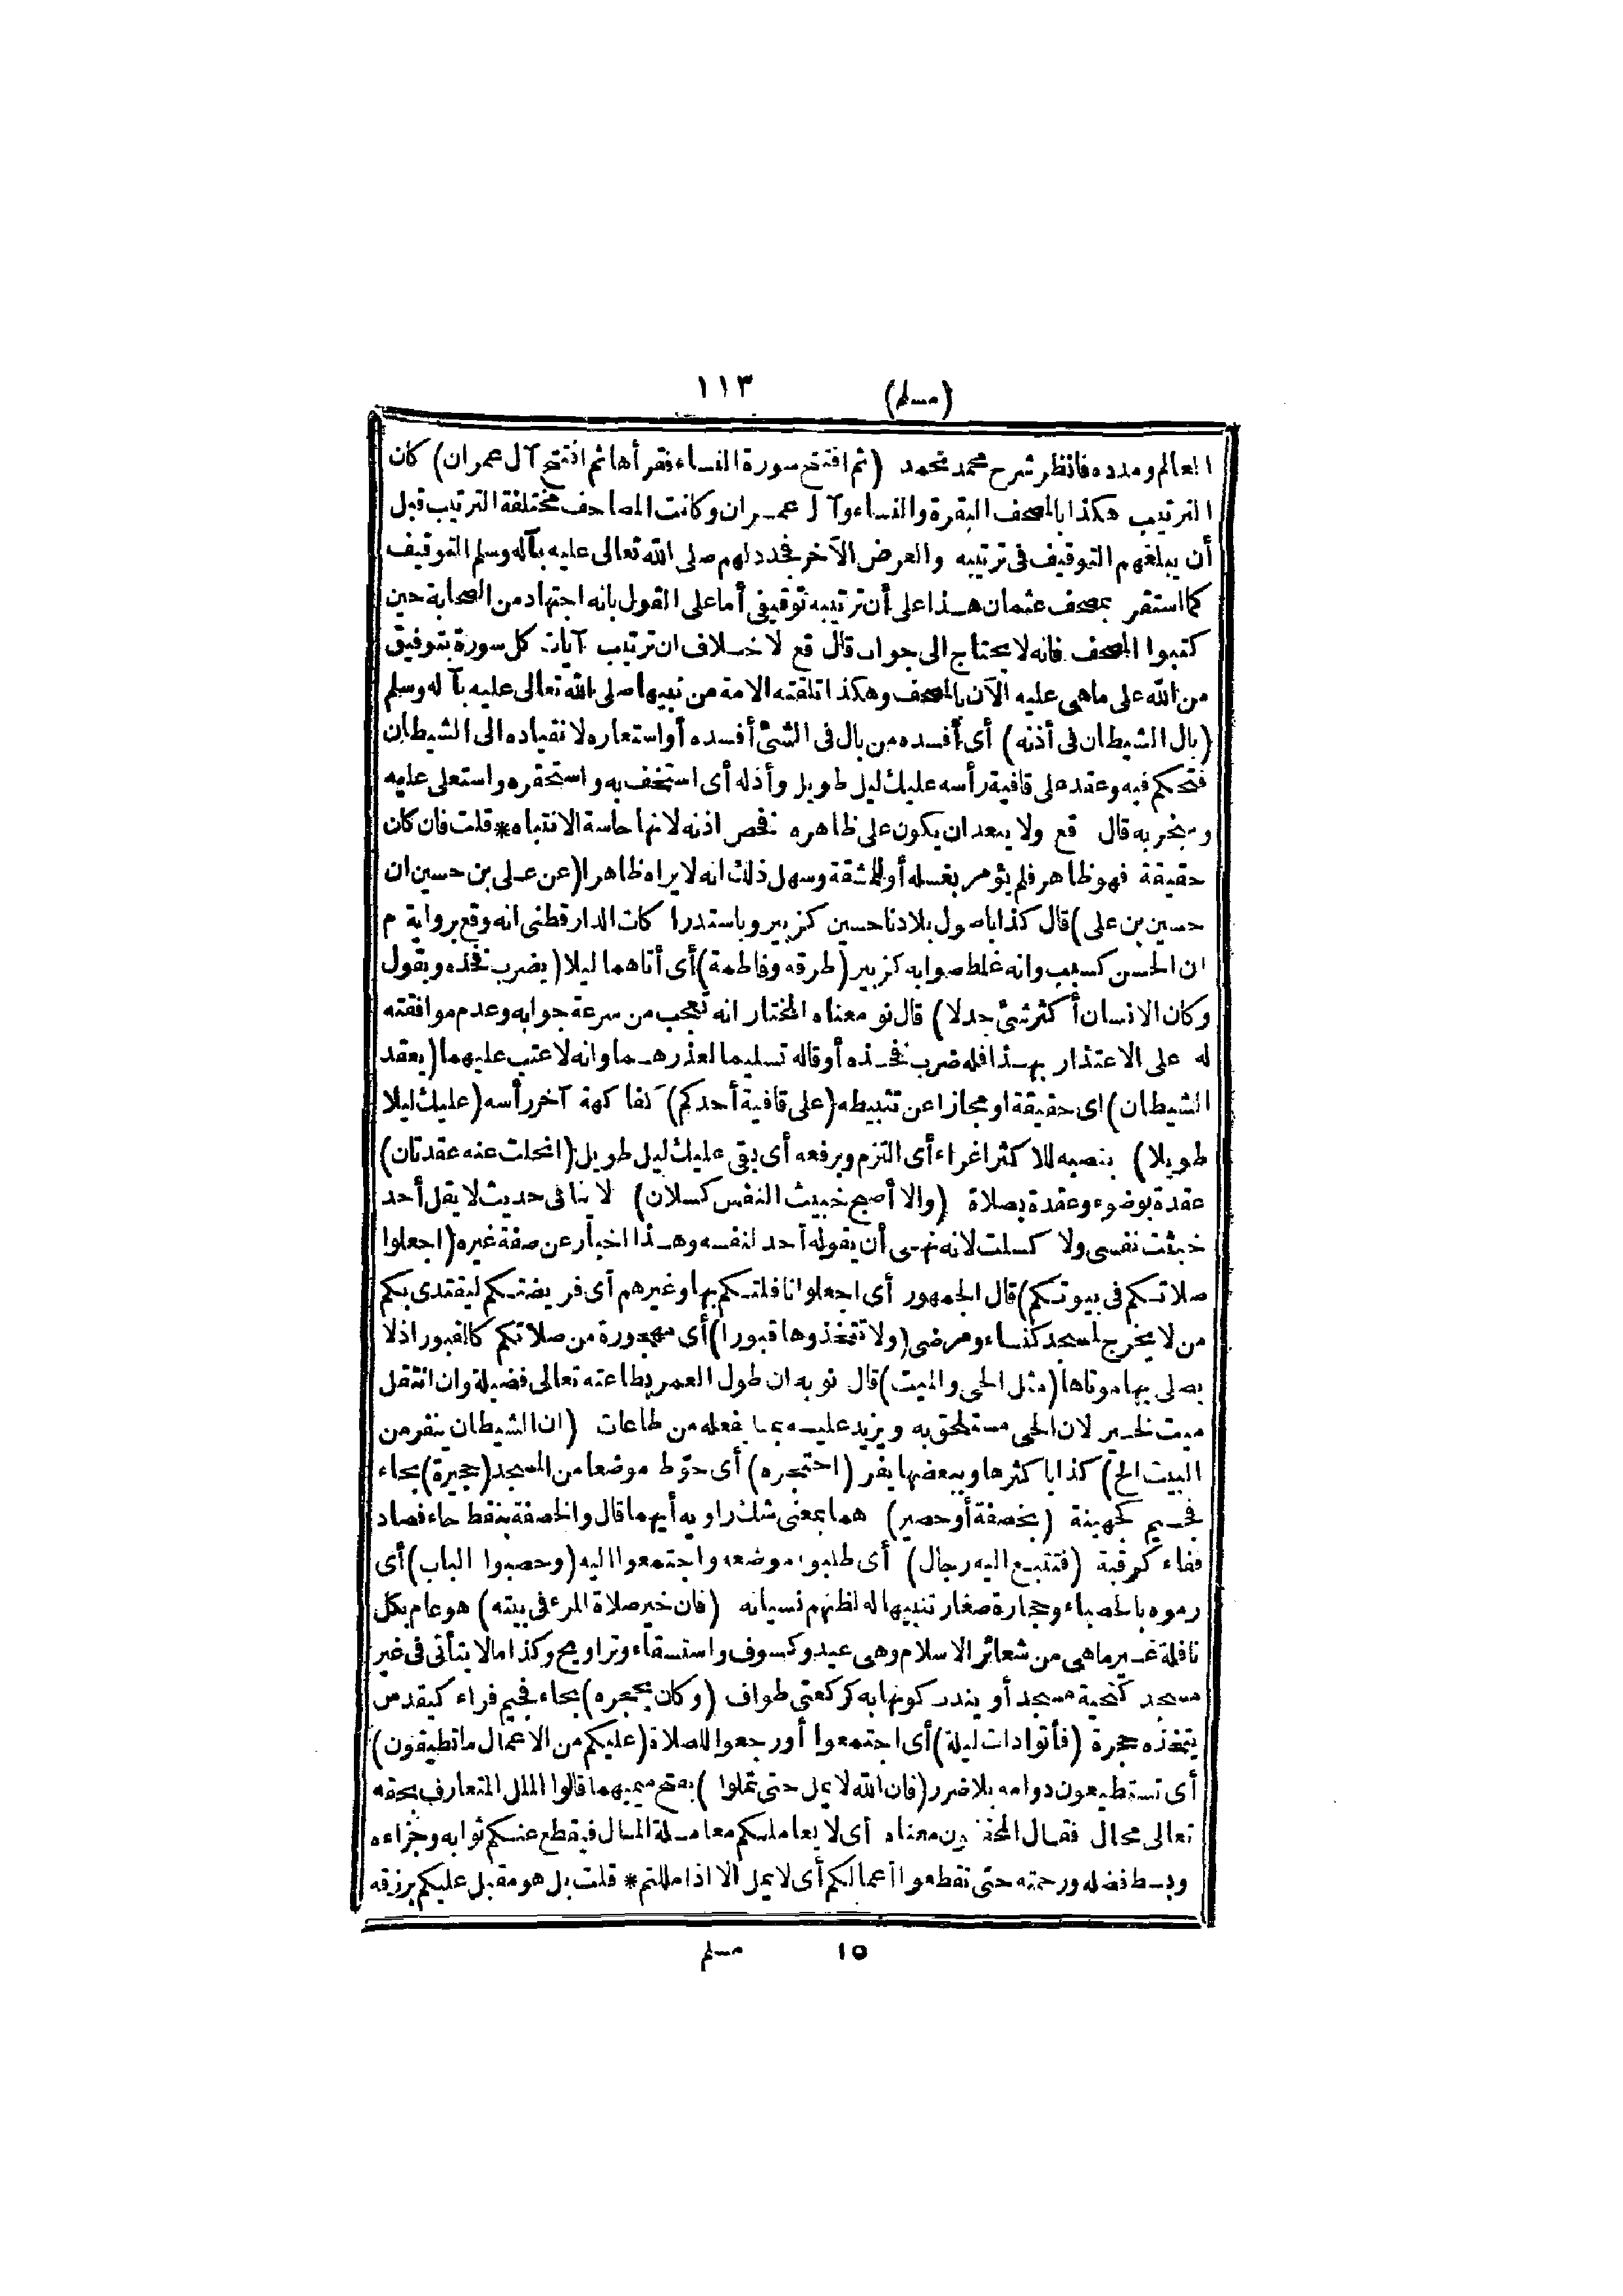 (مسلم) ١١٣
العالم ومدده فانظر شرح محمد محمد (ثم افتتح سورة النساء فقرأها ثم افتتح آل عمران) كان
الترتيب هكذا بالمصحف البقرة والنساء وآل عمران وكانت المصاحف مختلفة الترتيب قبل
أن يبلغهم التوقيف فى ترتيبه والعرض الآخر فحدد لهم صلى الله تعالى عليه بآله وسلم التوقيف
كما استقر بمصحف عثمان هذا على أن ترتيبه توقيفى أما على القول بانه اجتهاد من الصحابة حين
كتبوا المصحف فانه لا يحتاج الى جواب قال قع لا خلاف ان ترتيب آيات كل سورة بتوفيق
من الله على ما هى عليه الآن بالمصحف وهكذا تلقته الامة من نبيها صلى الله تعالى عليه بآله وسلم
(بال الشيطان فى أذنه) أى أفسده من بال فى الشئ أفسده أو استعاره لانقياده الى الشيطان
فتحكم فيه وعقد على قافية رأسه عليك ليل طويل وأذله أى استخف به واستحقره واستعلى عليه
وسخر به قال قع ولا يبعد ان يكون على ظاهره فخص اذنه لانها حاسة الانتباه * قلت فان كان
حقيقة فهو ظاهر فلم يؤمر بغسله أو للمشقة وسهل ذلك انه لا يراه ظاهرا (عن على بن حسين ان
حسين بن على) قال كذا باصول بلادنا حسين كزبير وباستدرا كات الدارقطنى انه وقع برواية م
ان الحسن كسبب وانه غلط صوابه كزبير (طرقه وفاطمة) أى أتاهما ليلا (يضرب فخذه ويقول
وكان الانسان أكثر شئ جدلا) قال نو معناه المختار انه تعجب من سرعة جوابه وعدم موافقته
له على الاعتذار بهذا فله ضرب فخذه أو قاله تسليما لعذرهما وانه لا عتب عليهما (يعقد
الشيطان) اى حقيقة او مجازا عن تثبيطه (على قافية أحدكم) كفا كهة آخر رأسه (عليك ليلا
طويلا) بنصبه للاكثر اغراء أى التزم وبرفعه أى بقى عليك ليل طويل (انحلت عنه عقدتان)
عقدة بوضوء وعقدة بصلاة (والا أصبح خبيث النفس كسلان) لا ينافى حديث لا يقل أحد
خبثت نفسى ولا كسلت لانه نهى أن يقوله أحد لنفسه وهذا اخبار عن صفة غيره (اجعلوا
صلاتكم فى بيوتكم) قال الجمهور أى اجعلوا نافلتكم بها وغيرهم أى فريضتكم ليقتدى بكم
من لا يخرج لمسجد كنساء ومرضى (ولا تتخذوها قبورا) أى مهجورة من صلاتكم كالقبور اذ لا
يصلى بها موتاها (مثل الحى والميت) قال نو به ان طول العمر بطاعته تعالى فضيلة وان انتقل
ميت لخير لان الحى مستلحق به ويزيد عليه بما يفعله من طاعات (ان الشيطان ينفر من
البيت الخ) كذا باكثرها وببعضها يفر (احتجره) أى حوّط موضعا من المسجد (حجيرة) بحاء
فجيم كجهينة (بخصفة أو حصير) هما بمعنى شك راويه أيهما قال والخصفة بنقط حاء فصاد
ففاء كرقبة (فتتبع اليه رجال) أى طلبوا موضعه واجتمعوا اليه (وحصبوا الباب) أى
رموه بالحصباء وحجارة صغار تنبيها له لظنهم نسيانه (فان خير صلاة المرء فى بيته) هو عام بكل
نافلة غير ما هى من شعائر الاسلام وهى عيد وكسوف واستسقاء وتراويح وكذا ما لا يتأتى فى غير
مسجد كتحية مسجد أو يندر كونها به كركعتى طواف (وكان يحجره) بحاء فجيم فراء كيقدس
يتخذه حجرة (فأتوا ذات ليلة) أى اجتمعوا أو رجعوا للصلاة (عليكم من الاعمال ما تطيقون)
أى تستطيعون دوامه بلا ضرر (فان الله لا يمل حتى تملوا) بفتح ميميهما قالوا الملل المتعارف بحقه
تعالى محال فقال المحققون معناه أى لا يعاملكم معاملة المال فيقطع عنكم ثوابه وجزاءه
وبسط فضله ورحمته حتى تقطعوا أعمالكم أى لا يمل الا اذا مللتم * قلت بل هو مقبل عليكم برزقه
١٥ مسلم